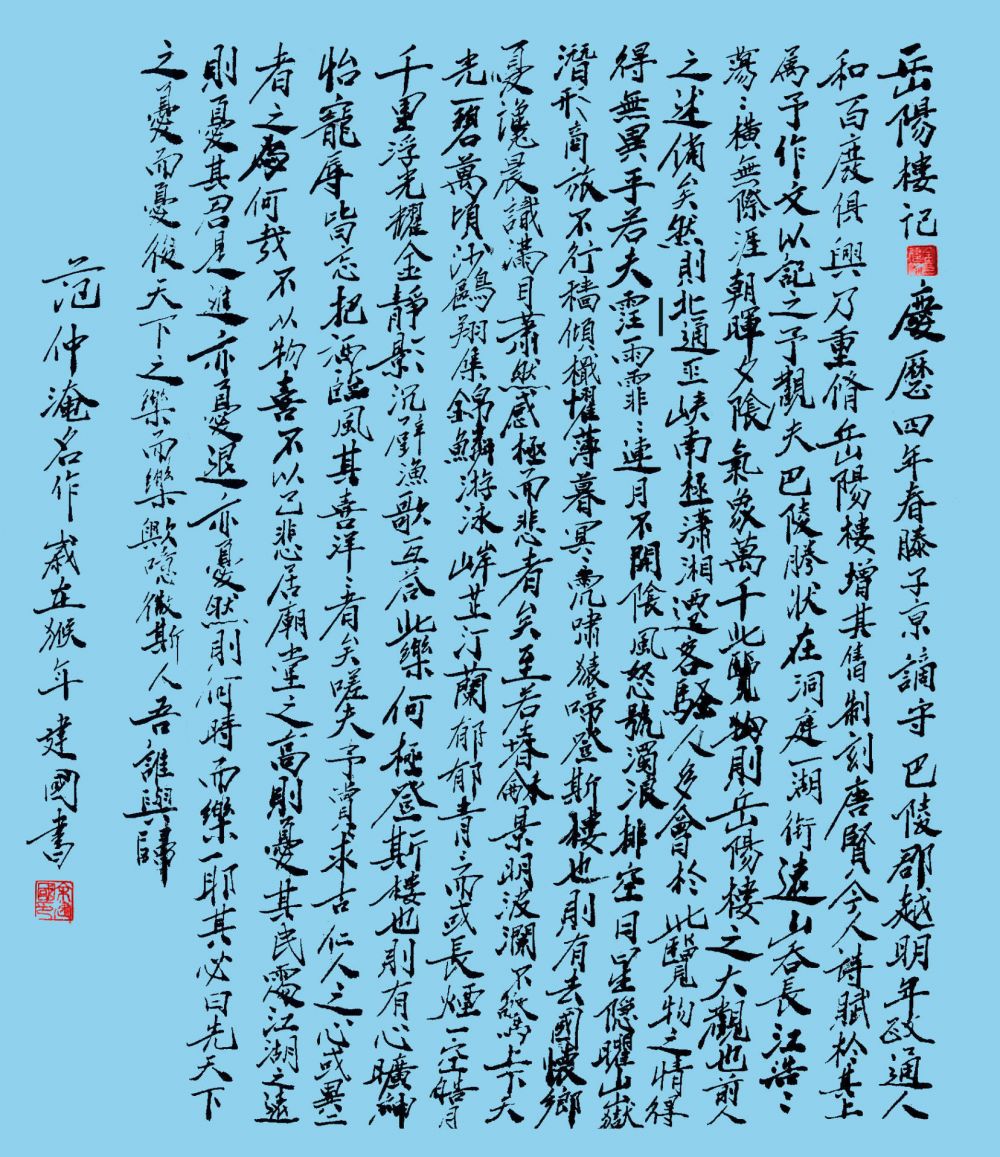 岳陽楼記 慶歷四年春滕子京謫守巴陵郡越明年政通人
和百廢俱興乃重脩岳陽楼增其舊制刻唐賢今人詩賦於其上
属予作文以記之予觀夫巴陵勝狀在洞庭一湖銜遠山吞長江浩々
蕩々橫無際涯朝暉夕陰氣象萬千此覽物則岳陽楼之大觀也前人
之述備矣然則北通巫峽南極瀟湘遷客騷人多會於此覽物之情得
得無異乎若夫霪雨霏々連月不開陰風怒號濁浪排空日星隱曜山嶽
潛形商旅不行檣傾檝摧薄暮冥々虎嘯猿啼登斯楼也則有去國懷鄉
憂讒畏譏滿目蕭然感極而悲者矣至若春龢景明波瀾不驚上下天
光一碧萬頃沙鷗翔集錦鱗游泳岸芷汀蘭郁郁青々而或長煙一空皓月
千里浮光耀金靜影沉璧漁歌互答此樂何極登斯楼也則有心曠神
怡寵辱皆忘把酒臨風其喜洋々者矣嗟夫予嘗求古仁人之心或異二
者之為何哉不以物喜不以己悲居廟堂之高則憂其民處江湖之遠
則憂其君是進亦憂退亦憂然則何時而樂耶其必曰先天下
之憂而憂後天下之樂而樂歟噫微斯人吾誰與歸
范仲淹名作 歲在猴年 建國書